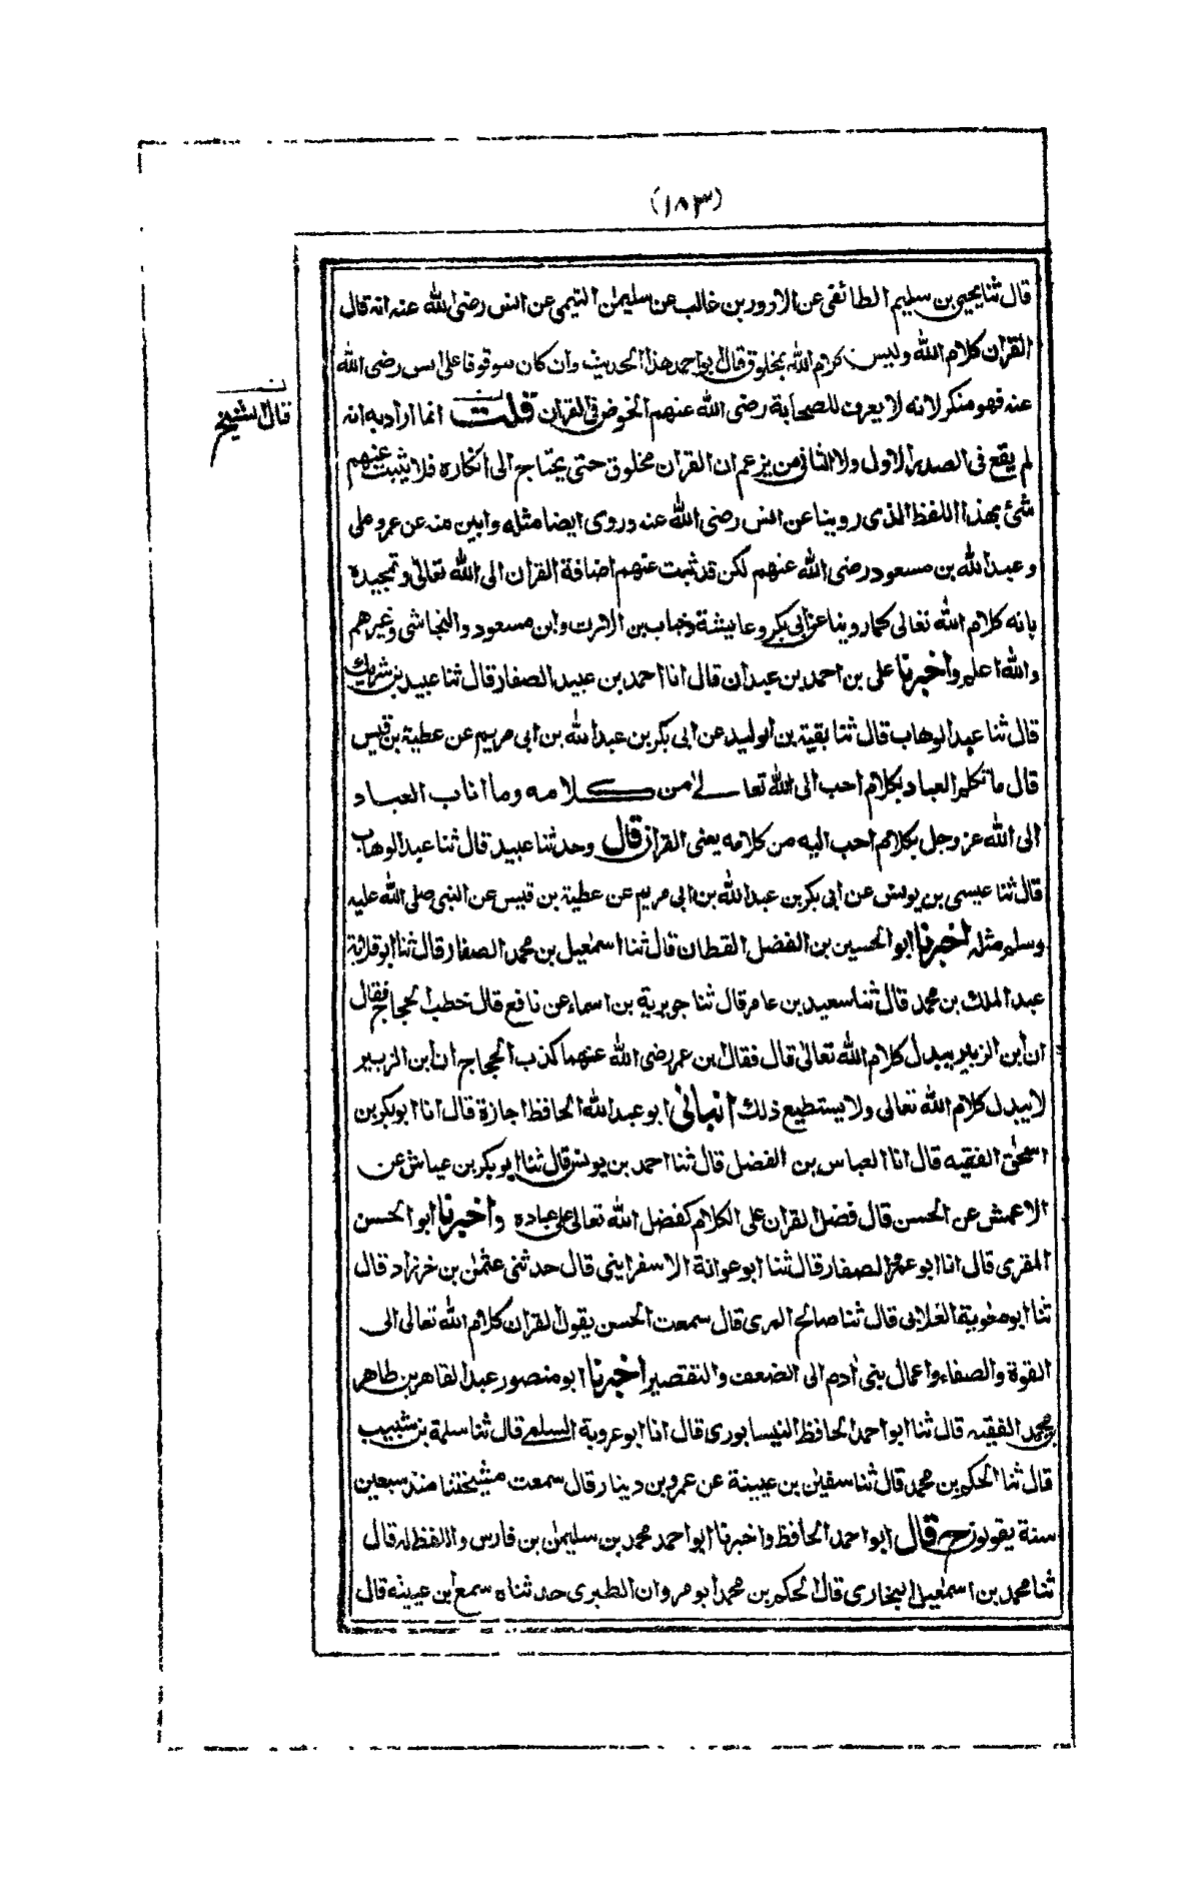 (١٨٣)
قال ثنا يحيى بن سليم الطائفى عن الازور بن غالب عن سليمن التيمى عن انس رضى الله عنه انه قال
القران كلام الله وليس كلام الله بمخلوق قال ابو احمد هذا الحديث وان كان موقوفا على انس رضى الله
عنه فهو منكر لانه لا يعرف للصحابة رضى الله عنهم الخوض فى القران قلت انما اراد به انه
لم يقع فى الصدر الاول ولا الثانى من يزعم ان القران مخلوق حتى يحتاج الى انكاره فلا يثبت عنهم
شئ بهذا اللفظ الذى روينا عن انس رضى الله عنه وروى ايضا مثله وابين منه عن عمر وعلى
وعبد الله بن مسعود رضى الله عنهم لكن قد ثبت عنهم اضافة القران الى الله تعالى وتمجيده
بانه كلام الله تعالى كما روينا عن ابى بكر وعايشة وخباب بن الارت وابن مسعود والنجاشى وغيرهم
والله اعلم واخبرنا على بن احمد بن عبدان قال انا احمد بن عبيد الصفار قال ثنا عبيد بن شريك
قال ثنا عبد الوهاب قال ثنا بقية بن الوليد عن ابى بكر بن عبد الله بن ابى مريم عن عطية بن قيس
قال ما تكلم العباد بكلام احب الى الله تعالى من كلامه وما اناب العباد
الى الله عز وجل بكلام احب اليه من كلامه يعنى القران قال وحدثنا عبيد قال ثنا عبد الوهاب
قال ثنا عيسى بن يونس عن ابى بكر بن عبد الله بن ابى مريم عن عطية بن قيس عن النبى صلى الله عليه
وسلم مثله اخبرنا ابو الحسين بن الفضل القطان قال ثنا اسمعيل بن محمد الصفار قال ثنا ابو قلابة
عبد الملك بن محمد قال ثنا سعيد بن عامر قال ثنا جويرية بن اسماء عن نافع قال خطب الحجاج فقال
ان ابن الزبير يبدل كلام الله تعالى قال فقال ابن عمر رضى الله عنهما كذب الحجاج ان ابن الزبير
لا يبدل كلام الله تعالى ولا يستطيع ذلك انبانى ابو عبد الله الحافظ اجازة قال انا ابو بكر بن
اسحق الفقيه قال انا العباس بن الفضل قال ثنا احمد بن يونس قال ثنا ابو بكر بن عياش عن
الاعمش عن الحسن قال فضل القران على الكلام كفضل الله تعالى على عباده واخبرنا ابو الحسن
المقرى قال انا ابو عمر الصفار قال ثنا ابو عوانة الاسفراينى قال حدثنى عثمن بن خرزاد قال
ثنا ابو معوية الغلابى قال ثنا صالح المرى قال سمعت الحسن يقول القران كلام الله تعالى الى
القوة والصفاء واعمال بنى ادم الى الضعف والتقصير اخبرنا ابو منصور عبد القاهر بن طاهر
بن محمد الفقيه قال ثنا ابو احمد الحافظ النيسابورى قال انا ابو عروبة السلمى قال ثنا سلمة بن شبيب
قال ثنا الحكم بن محمد قال ثنا سفين بن عيينة عن عمرو بن دينار قال سمعت مشيختنا منذ سبعين
سنة يقولون ح قال ابو احمد الحافظ واخبرنا ابو احمد محمد بن سليمن بن فارس واللفظ له قال
ثنا محمد بن اسمعيل البخارى قال الحكم بن محمد ابو مروان الطبرى حدثناه سمع ابن عيينه قال
ن
قال الشيخ